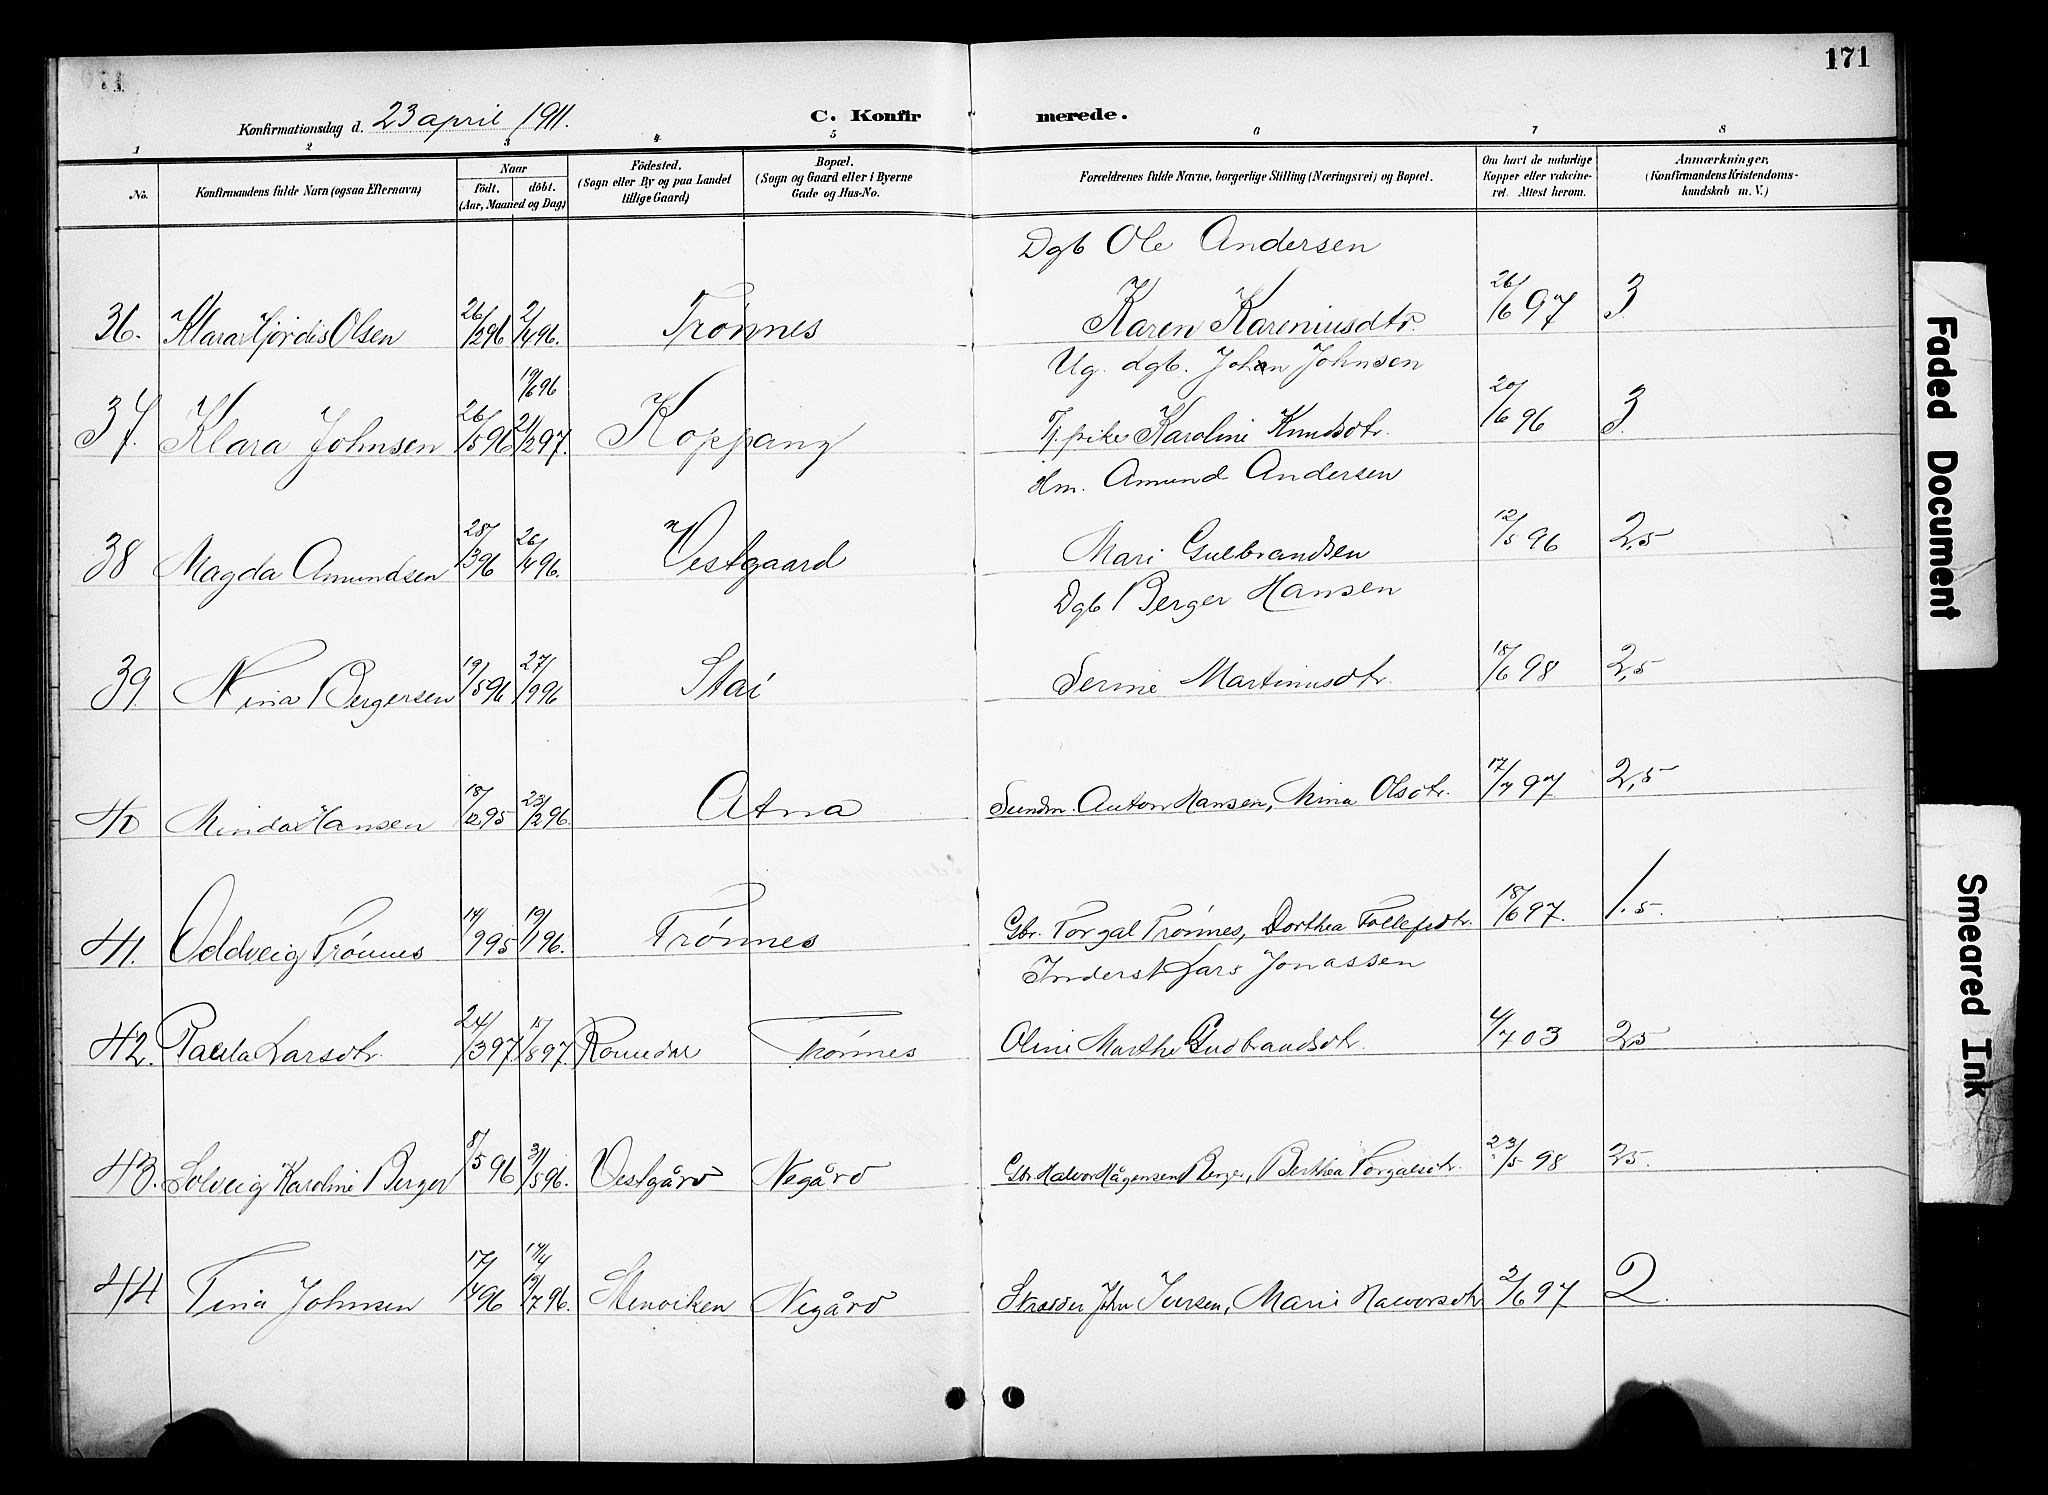 171
Konfirmationsdag d. 23 april 1911.
C. Konfirmerede.
1 2 3 4 5 6 7 8
No.
Konfirmandens fulde Navn (ogsaa Efternavn)
Naar
født. døbt.
(Aar, Maaned og Dag)
Fødested.
(Sogn eller By og paa Landet
tillige Gaard)
Bopæl.
(Sogn og Gaard eller i Byerne
Gade og Hus-No.
Forældrenes fulde Navne, borgerlige Stilling (Næringsvei) og Bopæl.
Om havt de naturlige
Kopper eller vakcine-
ret. Attest herom.
Anmærkninger,
(Konfirmandens Kristendoms-
kundskab m. V.)
Dgb Ole Andersen
36. Klara Hjørdis Olsen 26/2 96 2/4 96. Trønnes Karen Kareniusdtr. 26/6 97 3
Ug. dgb. Johan Johnsen
19/6 96
37. Klara Johnsen 26/5 96 21/2 97. Koppang Tj. pike Karoline Knudsdtr. 20/6 96 3.
Hm. Amund Andersen
38 Magda Amundsen 28/3 96 26/4 96. Vestgaard Mari Gulbrandsen 12/5 96 2,5
Dgb Berger Hansen
39 Nina Bergersen 19/5 96 27/9 96 Stai Serine Martinusdtr. 18/6 98 2,5
40 Minda Hansen 18/12 95 23/2 96. Atna Sundm. Anton Hansen, Mina Olsdtr. 17/7 97 2,5
41. Oddveig Trønnes 14/9 95 19/1 96. Trønnes Gbr. Torgal Trønnes, Dorthea Tollefsdtr. 18/6 97. 1.5.
Inderst Lars Jonassen
42. Paula Larsdtr. 24/3 97 15/8 97. Romedal Trønnes Oline Marthe Gudbrandsdtr. 4/7 03 25
43. Solveig Karoline Berger 8/5 96 31/5 96. Vestgård Negård Gbr. Halvor Hågensen Berger, Berthea Torgalsdtr. 23/5 98 25.
14/4
44 Tina Johnsen 17/1 96 19/7 96. Stenviken Negård Skrædder John Iversen, Marie Halvorsdtr 2/6 97 2.
Faded Document
Smeared Ink